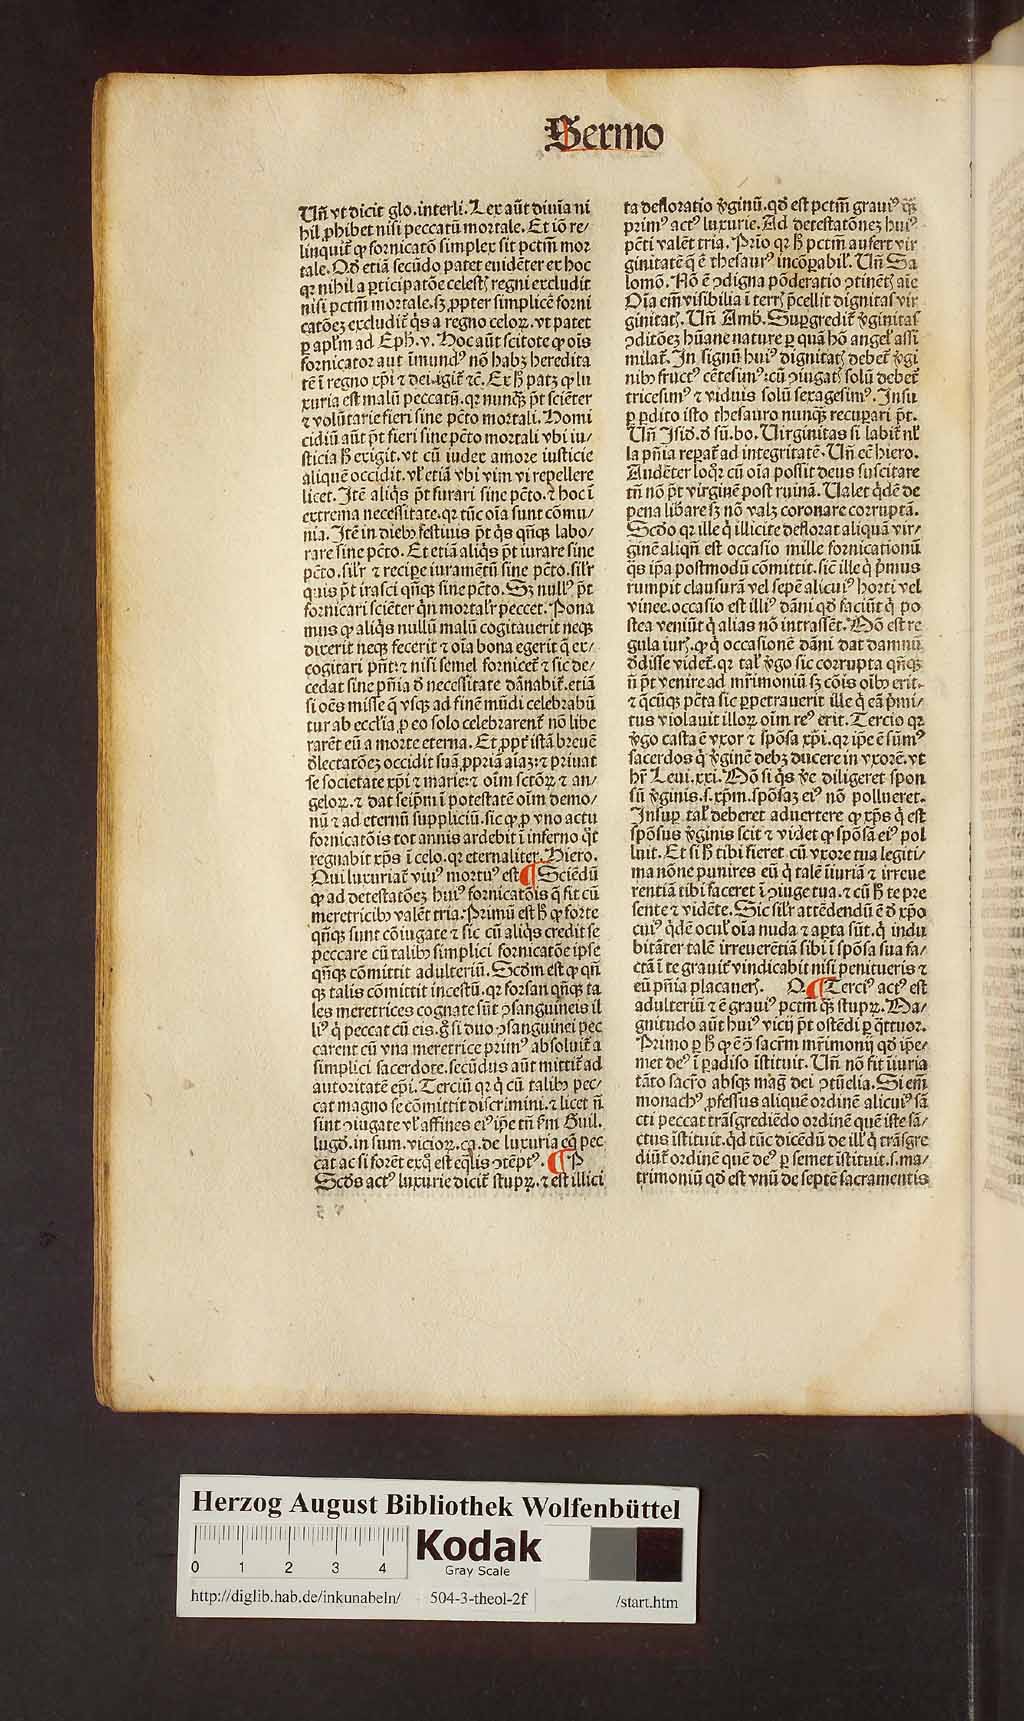 Sermo
Uñ vt dicit glo.interli.Lex aūt diuīa ni
hil ꝓhibet nisi peccatū mortale. Et iō re/
linquit᷑ ꝙ fornicatō simplex sit pctm̄ mor
tale. Qd̓ etiā secūdo patet euidēter ex hoc
qꝛ nihil a ꝑticipatōe celestꝭ regni excludit
nisi pctm̄ mortale.sꝫ ꝓpter simplicē forni
catōeꝫ excludit᷑ qͥs a regno celoꝝ.vt patet
ꝑ apl̓m ad Eph.v. Hoc aūt scitote ꝙ oīs
fornicator aut īmundꝰ nō habꝫ heredita
tē ī regno xp̄i ⁊ dei.igit᷑ ⁊c̄. Ex ħ patꝫ ꝙ lu
xuria est malū peccatū.qꝛ nunqͣꝫ pōt sciēter
⁊ volūtarie fieri sine pctō mortali. Homi
cidiū aūt pōt fieri sine pctō mortali vbi iu/
sticia ħ exigit.vt cū iudex amore iusticie
aliquē occidit.vl̓ etiā vbi vim vi repellere
licet. Itē aliqͥs pōt furari sine pctō.⁊ hoc ī
extrema necessitate.qꝛ tūc oīa sunt cōmu/
nia. Itē in diebꝫ festiuis pōt qͥs qn̄qꝫ labo/
rare sine pctō. Et etiā aliqͥs pōt iurare sine
pctō.sil̓r ⁊ recipe iuramētū sine pctō.sil̓r
quis pōt irasci qn̄qꝫ sine pctō. Sꝫ nullꝰ pōt
fornicari sciēter qͥn mortal̓r peccet. Pona
mus ꝙ aliqͥs nullū malū cogitauerit neqꝫ
dixerit neqꝫ fecerit ⁊ oīa bona egerit q̄ ex/
cogitari pn̄t:⁊ nisi semel fornicet᷑ ⁊ sic de/
cedat sine pn̄ia d̓ necessitate dānabit᷑.etiā
si oēs misse q̄ vsqꝫ ad finē mūdi celebrabū
tur ab ecclīa ꝓ eo solo celebrarent᷑ nō libe
rarēt eū a morte eterna. Et ꝓpt̓ istā breuē
d̓lectatōeꝫ occidit suā ꝓpriā aīaꝫ:⁊ priuat
se societate xp̄i ⁊ marie:⁊ oīm sctōꝝ ⁊ an/
geloꝝ.⁊ dat seip̄m ī potestatē oīm demo/
nū ⁊ ad eternū suppliciū.sic ꝙ ꝓ vno actu
fornicatōis tot annis ardebit ī inferno qͦt
regnabit xp̄s ī celo.qꝛ eternaliter. Hiero.
Qui luxuriat᷑ viuꝰ mortuꝰ est ¶ Sciēdū
ꝙ ad detestatōeꝫ huiꝰ fornicatōis q̄ fit cū
meretricibꝫ valēt tria. Primū est ħ ꝙ forte
qn̄qꝫ sunt cōiugate ⁊ sic cū aliqͥs credit se
peccare cū talibꝫ simplici fornicatōe ipse
qn̄qꝫ cōmittit adulteriū. Scd̓m est ꝙ qn̄
qꝫ talis cōmittit incestū.qꝛ forsan qn̄qꝫ ta
les meretrices cognate sūt ↄsanguineis il
liꝰ q̓ peccat cū eis.g̓ si duo ↄsanguinei pec
carent cū vna meretrice primꝰ absoluit᷑ a
simplici sacerdote.secūdus aūt mittit᷑ ad
autoritatē ep̄i. Terciū qꝛ q̓ cū talibꝫ pec/
cat magno se cōmittit discrimini.⁊ licet n̄
sint ↄiugate vl̓ affines eiꝰ ip̄e tn̄ fm̄ Guil.
lugd̓.in sum.vicioꝝ.ca.de luxuria eq̄ pec
cat ac si forēt exqͦ est eq̄lis ↄtēptꝰ. ¶ P
Scd̓s actꝰ luxurie dicit᷑ stupꝝ.⁊ est illici
ta defloratio v̓ginū.qd̓ est pctm̄ grauiꝰ qͣꝫ
primꝰ actꝰ luxurie. Ad detestatōeꝫ huiꝰ
pctī valēt tria. Prīo qꝛ ħ pctm̄ aufert vir
ginitatē q̄ ē thesaurꝰ incōꝑabil̓. Uñ Sa
lomō. Nō ē ↄdigna pōderatio ↄtinētꝭ aīe
Oīa em̄ visibilia ī terrꝭ p̄cellit dignitas vir
ginitatꝭ. Uñ Amb. Suꝑgredit᷑ v̓ginitas
ↄditōeꝫ hūane nature ꝑ quā hō angel̓ assi
milat᷑. In signū huiꝰ dignitatꝭ debet᷑ v̓gi
nibꝫ fructꝰ cētesimꝰ:cū ↄiugatꝭ solū debet᷑
tricesimꝰ ⁊ viduis solū sexagesimꝰ. Insu
ꝑ ꝑdito isto thesauro nunqͣꝫ recuꝑari pōt.
Uñ Isid̓.d̓ sū.bo. Uirginitas si labit᷑ nl̓
la pn̄ia reꝑat᷑ ad integritatē. Uñ ecē hiero.
Audēter loqͦr cū oīa possit deus suscitare
tn̄ nō pōt virginē post ruinā. Ualet qͥdē de
pena liƀare sꝫ nō valꝫ coronare corruptā.
Scd̓o qꝛ ille q̓ illicite deflorat aliquā vir/
ginē aliqn̄ est occasio mille fornicationū
q̄s ip̄a postmodū cōmittit.sic̄ ille q̓ p̓mus
rumpit clausurā vel sepē alicuiꝰ horti vel
vinee.occasio est illiꝰ dāni qd̓ faciūt q̓ po
stea veniūt q̓ alias nō intrassēt. Nō est re
gula iurꝭ.ꝙ q̓ occasionē dāni dat damnū
d̓disse videt᷑.qꝛ tal̓ v̓go sic corrupta qn̄qꝫ
n̄ pōt venire ad mr̄imoniū sꝫ cōis oībꝫ erit.
⁊ qͥcūqꝫ pctā sic ꝑpetrauerit ille q̓ eā p̓mi/
tus violauit illoꝝ oīm reꝰ erit. Tercio qꝛ
v̓go casta ē vxor ⁊ spōsa xp̄i.qꝛ ip̄e ē sūmꝰ
sacerdos q̓ v̓ginē debꝫ ducere in vxorē.vt
hr̄ Leui.xxi. Nō si qͥs v̓e diligeret spon
sū v̓ginis.s.xp̄m.spōsaꝫ eiꝰ nō pollueret.
Insuꝑ tal̓ deberet aduertere ꝙ xp̄s q̓ est
spōsus v̓ginis scit ⁊ videt ꝙ spōsā eiꝰ pol
luit. Et si ħ tibi fieret cū vxore tua legiti/
ma nōne punires eū q̓ talē iīuriā ⁊ irreue
rentiā tibi faceret ī ↄiuge tua.⁊ cū ħ te pre
sente ⁊ vidēte. Sic sil̓r attēdendū ē d̓ xp̄o
cuiꝰ qͥdē ocul̓ oīa nuda ⁊ aꝑta sūt.q̓ indu
bitāter talē irreuerētiā sibi ī spōsa sua fa/
ctā ī te grauit᷑ vindicabit nisi penitueris ⁊
eū pn̄ia placauerꝭ. Q. ¶ Terciꝰ actꝰ est
adulteriū ⁊ ē grauiꝰ pctm̄ qͣꝫ stupꝝ. Ma/
gnitudo aūt huiꝰ vicij pōt ostēdi ꝑ qͣttuor.
Primo ꝑ ħ ꝙ ē ↄ̄ sacrm̄ mr̄imonij qd̓ ip̄e/
met deꝰ ī ꝑadiso īstituit. Uñ nō fit iīuria
tāto sacr̄o absqꝫ mag̓ dei ↄtūelia. Si em̄
monachꝰ ꝓfessus aliquē ordinē alicuiꝰ sā
cti peccat trāsgrediēdo ordinē quē iste sā/
ctus īstituit.qͥd tūc dicēdū de ill̓ q̓ trāsgre
diūt᷑ ordinē quē deꝰ ꝑ semet īstituit.s.ma/
trimoniū qd̓ est vnū de septē sacramentis
Herzog August Bibliothek Wolfenbüttel
0 1 2 3 4
Kodak
Gray Scale
http://diglib.hab.de/inkunabeln/ 504-3-theol-2f /start.htm